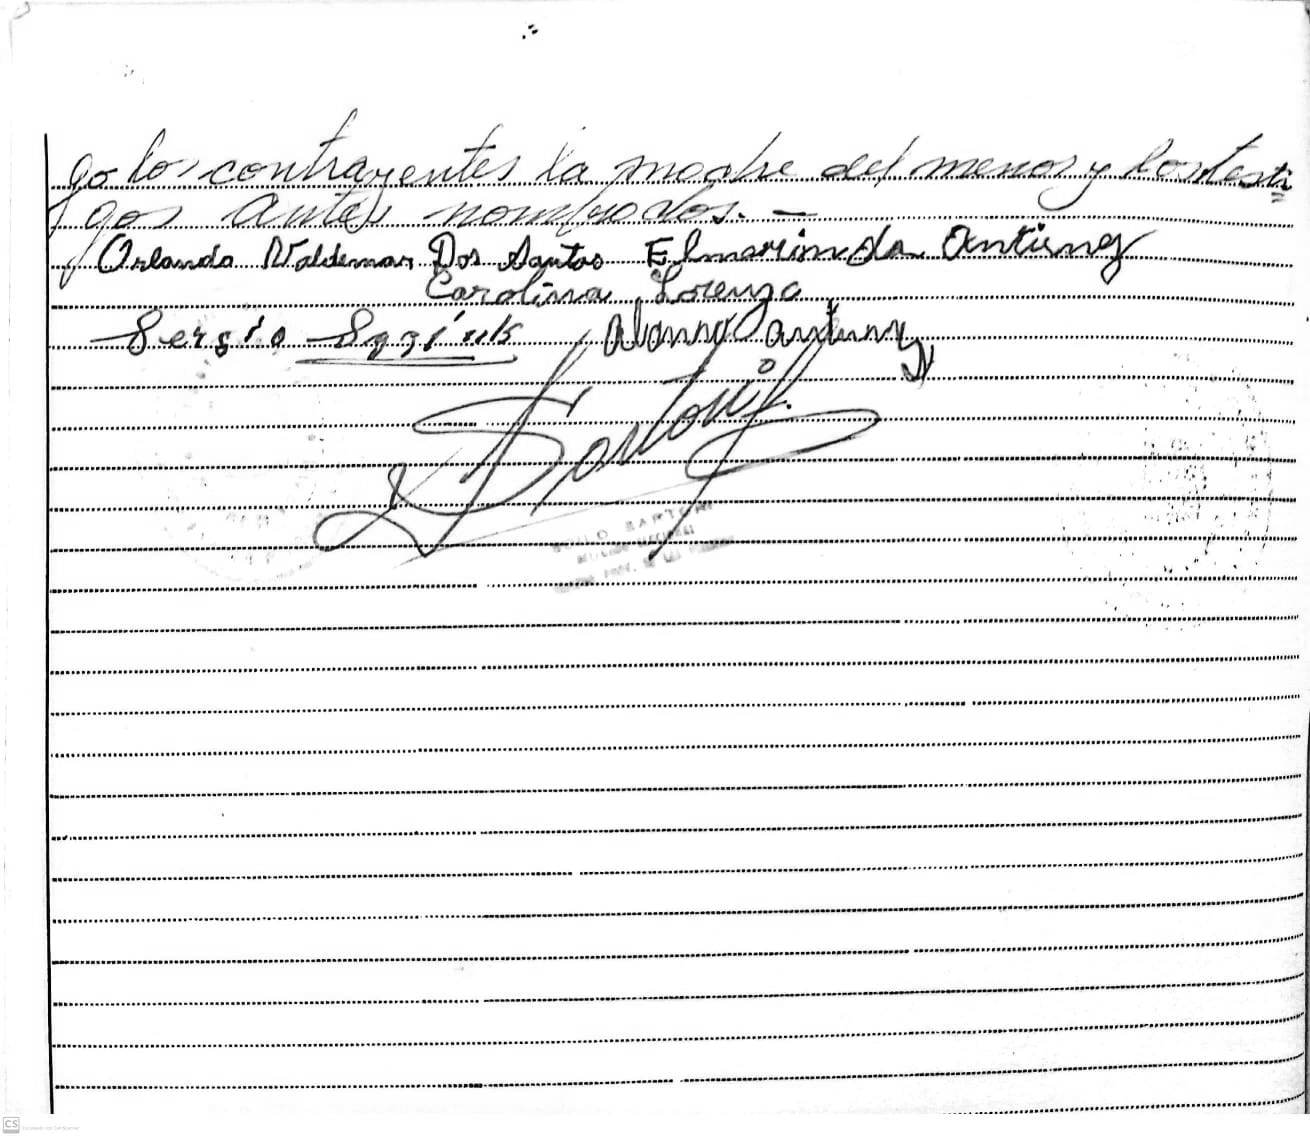 go los contrayentes la madre del menor y los testi
gos antes nombrados. —
Orlando Waldemar Dos Santos Elmorinda Antunez
Carolina Lorenzo
Sergio
Santoni
SANTONI
CS